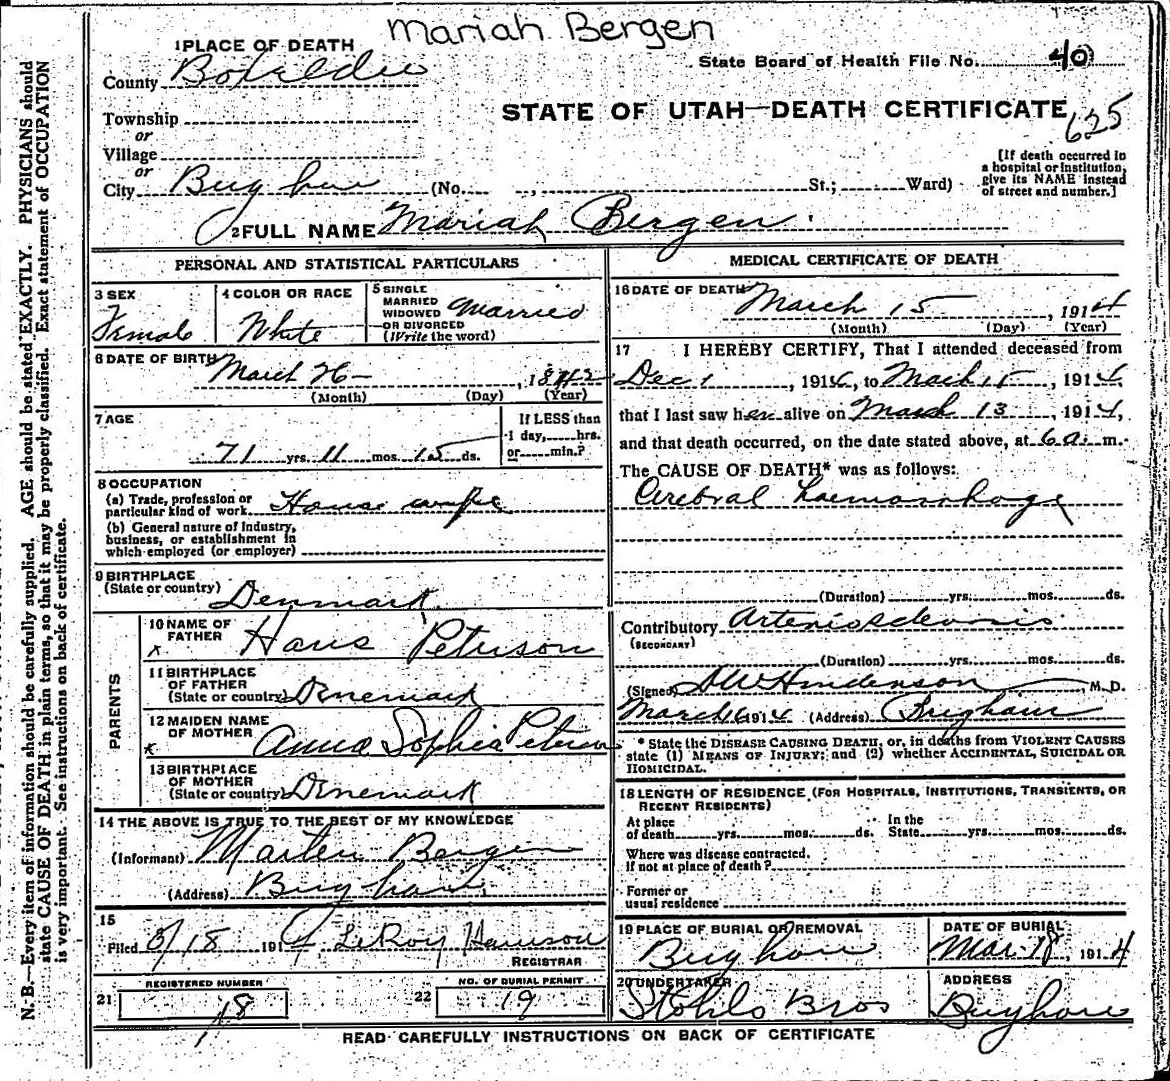 Mariah Bergen
1 PLACE OF DEATH
County Boxelder
State Board of Health File No. 40
STATE OF UTAH—DEATH CERTIFICATE
625
Township
or
Village
or
City Brigham (No. , St.; Ward)
[If death occurred in
a hospital or institution,
give its NAME instead
of street and number.]
2 FULL NAME Mariah Bergen
PERSONAL AND STATISTICAL PARTICULARS
3 SEX
Female
4 COLOR OR RACE
White
5 SINGLE
MARRIED
WIDOWED
OR DIVORCED
(Write the word)
Married
6 DATE OF BIRTH
March 26 , 1842
(Month) (Day) (Year)
7 AGE
71 yrs. 11 mos. 15 ds.
If LESS than
1 day, hrs.
or min.?
8 OCCUPATION
(a) Trade, profession or
particular kind of work House wife
(b) General nature of industry,
business, or establishment in
which employed (or employer)
9 BIRTHPLACE
(State or country) Denmark
PARENTS
10 NAME OF
FATHER Hans Peterson
x
11 BIRTHPLACE
OF FATHER
(State or country) Denemark
12 MAIDEN NAME
OF MOTHER Anna Sophia Peterson
x
13 BIRTHPLACE
OF MOTHER
(State or country) Denemark
14 THE ABOVE IS TRUE TO THE BEST OF MY KNOWLEDGE
(Informant) Marten Bergen
(Address) Brigham
15
Filed 3/18 1914 LeRoy Harrison
REGISTRAR
REGISTERED NUMBER
21 18
NO. OF BURIAL PERMIT
22 19
MEDICAL CERTIFICATE OF DEATH
16 DATE OF DEATH
March 15 , 1914
(Month) (Day) (Year)
17 I HEREBY CERTIFY, That I attended deceased from
Dec 1 , 1914, to March 15 , 1914,
that I last saw her alive on March 13 , 1914,
and that death occurred, on the date stated above, at 6 a. m.
The CAUSE OF DEATH* was as follows:
Cerebral haemorrhage
(Duration) yrs. mos. ds.
Contributory Arteriosclerosis
(SECONDARY)
(Duration) yrs. mos. ds.
(Signed) Henderson , M. D.
March 16 1914 (Address) Brigham
* State the DISEASE CAUSING DEATH, or, in deaths from VIOLENT CAUSES
state (1) MEANS OF INJURY; and (2) whether ACCIDENTAL, SUICIDAL OR
HOMICIDAL.
18 LENGTH OF RESIDENCE (FOR HOSPITALS, INSTITUTIONS, TRANSIENTS, OR
RECENT RESIDENTS)
At place
of death yrs. mos. ds.
In the
State yrs. mos. ds.
Where was disease contracted.
If not at place of death?
Former or
usual residence
19 PLACE OF BURIAL OR REMOVAL
Brigham
DATE OF BURIAL
Mar. 18, 1914
20 UNDERTAKER
Stohls Bros
ADDRESS
Brigham
READ CAREFULLY INSTRUCTIONS ON BACK OF CERTIFICATE
N. B.—Every item of information should be carefully supplied. AGE should be stated EXACTLY. PHYSICIANS should
state CAUSE OF DEATH in plain terms, so that it may be properly classified. Exact statement of OCCUPATION
is very important. See instructions on back of certificate.